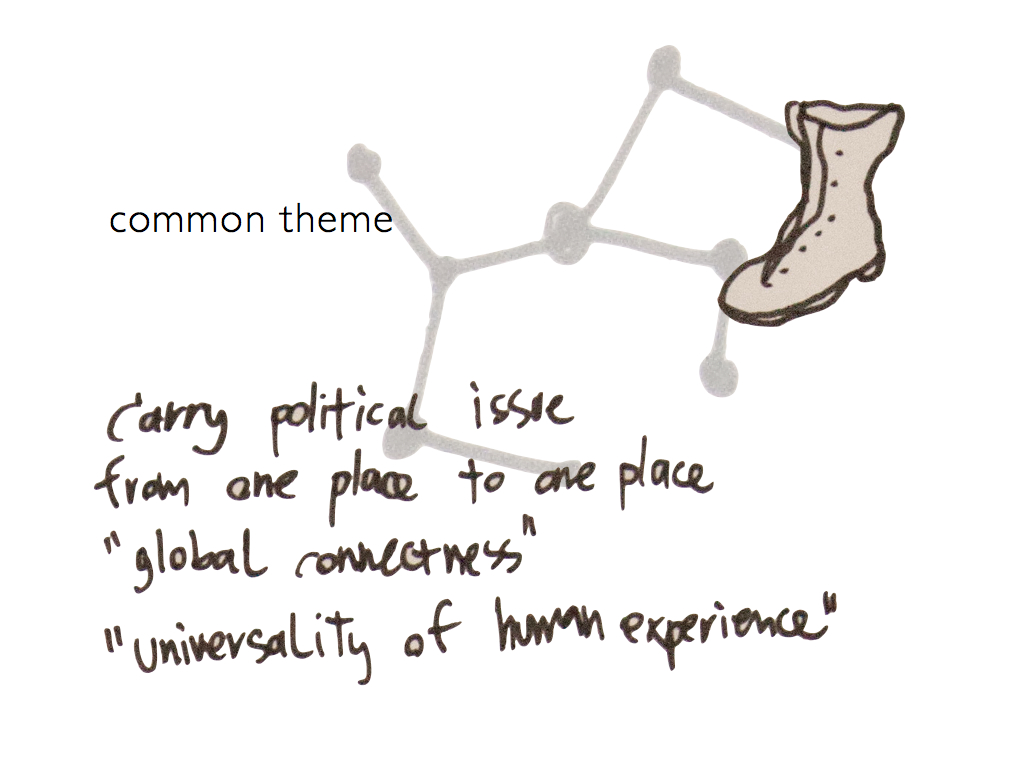 common theme
carry political issue
from one place to one place
"global connectness"
"universality of human experience"